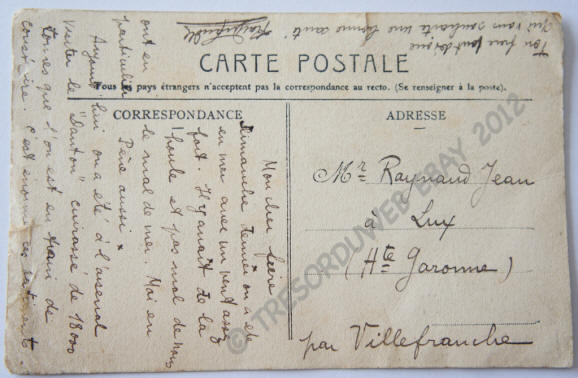 CARTE POSTALE
Tous les pays étrangers n'acceptent pas la correspondance au recto. (Se renseigner à la poste).
CORRESPONDANCE
Mon cher frère
Dimanche dernier on a été
en mer avec un vent assez
fort. Il y avait de la
houle et pas mal de nous
ont eu le mal de mer. Moi en
particulier Père aussi
Aujourd'hui on a été à l'arsenal
visiter le "Danton" cuirassé de 18000
tonnes que l'on est en train de
construire. C'est énorme ces batiments.
Ton frère
qui vous souhaite une bonne santé
ADRESSE
Mr. Raynaud Jean
à Lux
(Hte Garonne)
par Villefranche
© TRESORDUWEB EBAY 2012